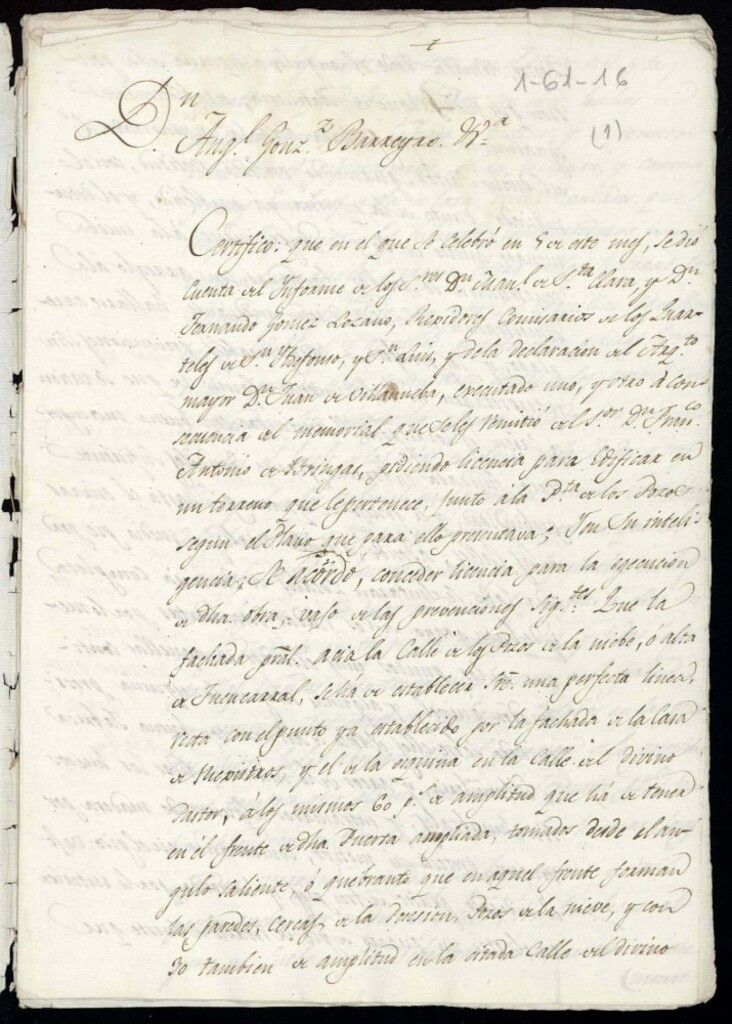 1-61-16
(1)
Dn.
Angl. Gonzz. Barreyro. &a
Certifico: que en el que se celebró en 5 de este mes, se dió
cuenta del Informe de los Sres. Dn. Juanl. de Sta. Clara, y Dn.
Fernando Gomez Lozano, Rexidores Comisarios de los Quar-
teles de Sn. Ildefonso, y Sn. Luis, y de la declaracion del Arqto.
mayor Dn. Juan de Villanueba, executado uno, y otro á con-
sequencia del memorial que se les remitió del Sor. Dn. Franco.
Antonio de Bringas, pidiendo licencia para Edificar en
un terreno que le pertenece, junto á la Pta. de los Pozos
según el Plano que para ello presentava; Y en su inteli-
gencia; Se acordó, conceder licencia para la egecucion
de dha. obra, vajo de las prevenciones sigtes. Que la
fachada pral. acia la Calle de los Pozos de la niebe, ó alta
de Fuencarral, se há de establecer en una perfecta linea,
recta con el punto ya establecido por la fachada de la Casa
de y el de la esquina en la Calle del divino
Pastor, á los mismos 60 ps. de amplitud que há de tener
en él frente de dha. Puerta ampliada, tomados desde el an-
gulo saliente, ó quebranto que en aquel frente forman
las paredes, cercas de la Posesion, Pozos de la nieve, y con
30 tambien de amplitud en la citada Calle del divino